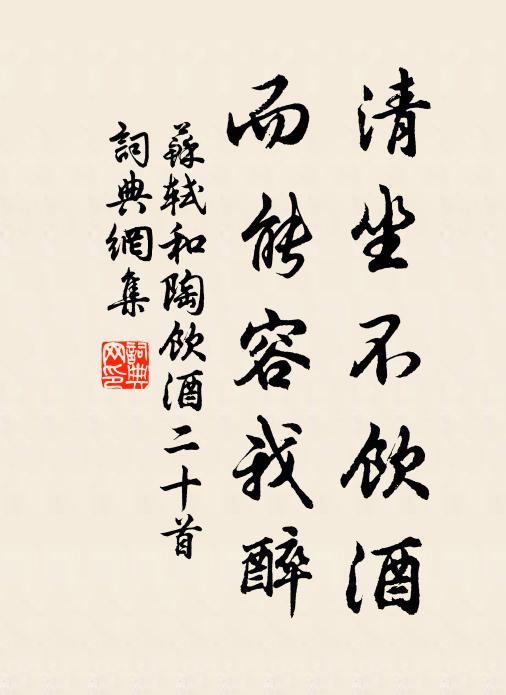 清坐不飲酒
而能容我醉
蘇軾和陶飲酒二十首
詞典網集
詞典網印